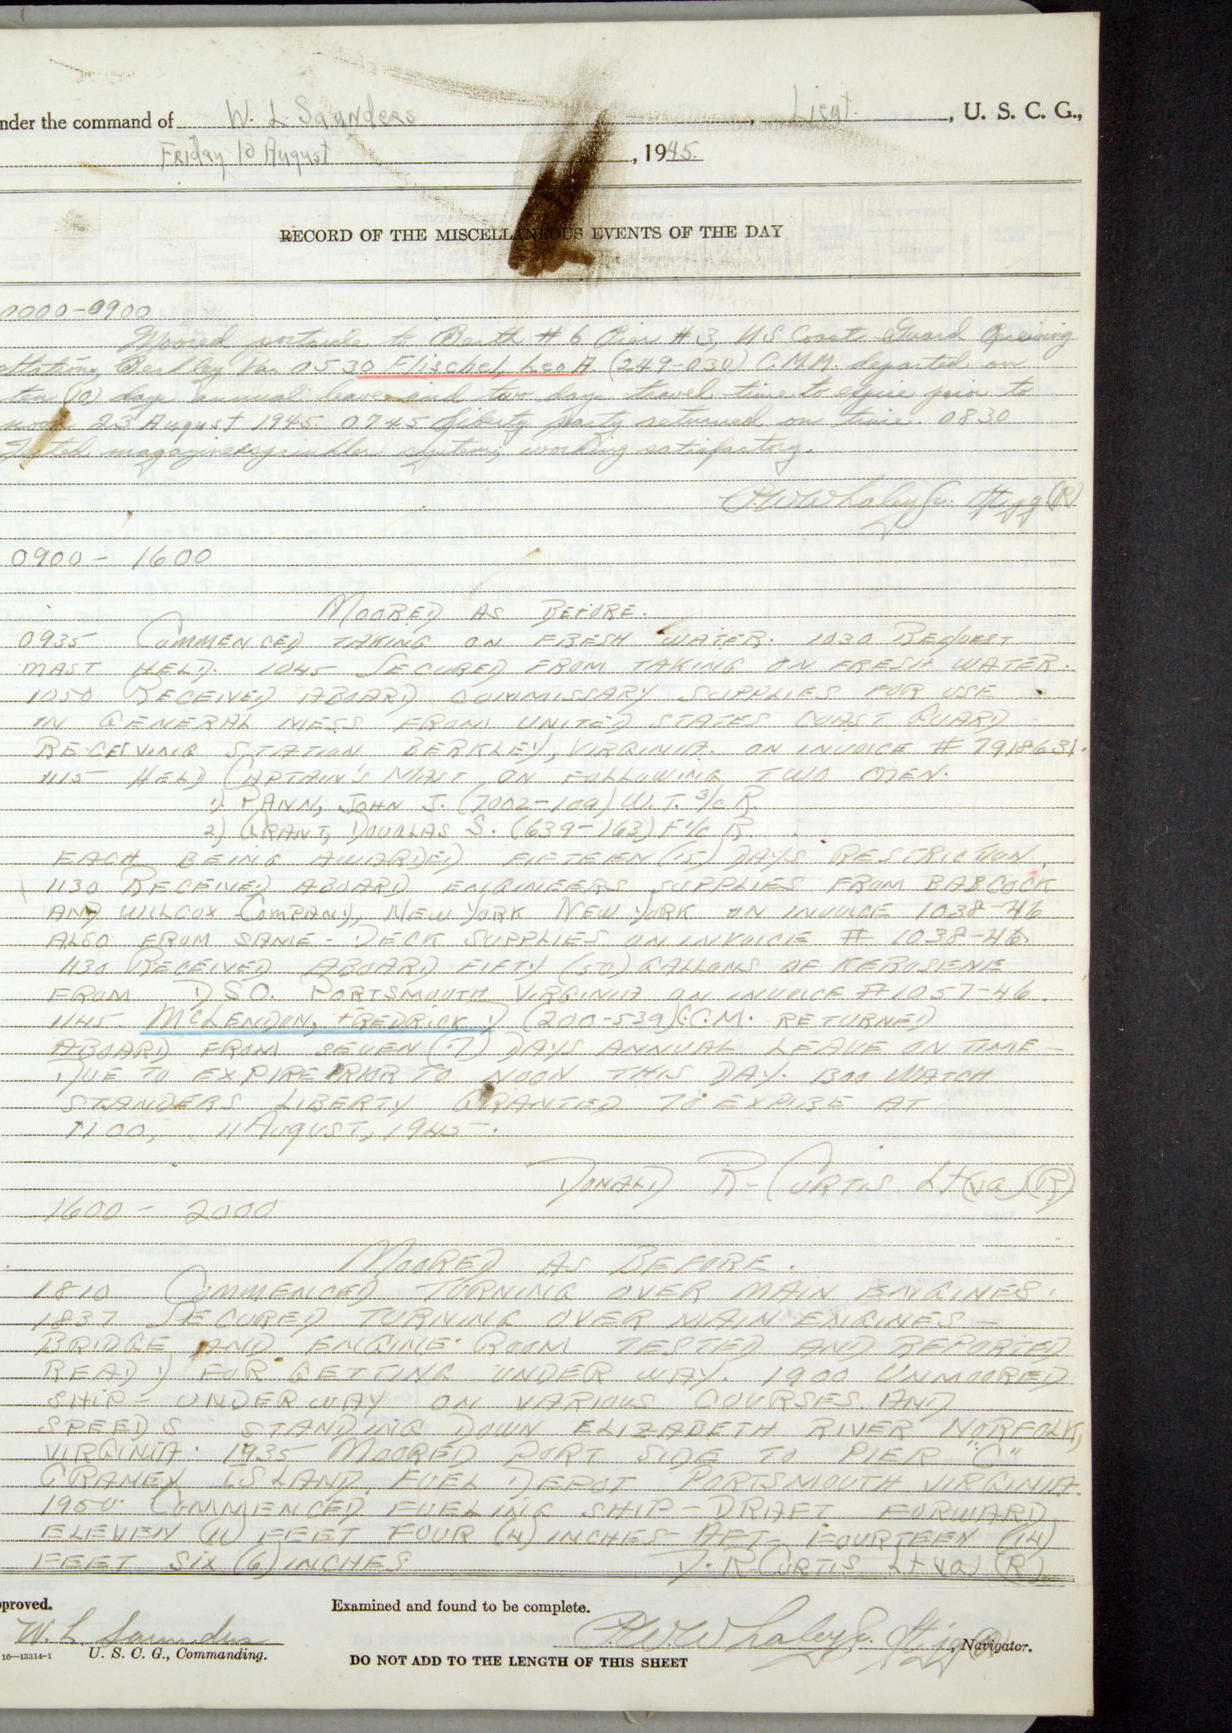 nder the command of W. L Saunders, Lieut., U. S. C. G.,
Friday 10 August, 1945.
RECORD OF THE MISCELLANEOUS EVENTS OF THE DAY
0000-0900
Moored portside to Berth #6 Pier #3, US Coast Guard Receiving
Station, Berkley Va. 0530 Flischel, Leo A. (249-030) C.M.M. departed on
ten (10) days annual leave and two days travel time to expire prior to
noon 23 August 1945. 0745 Liberty party returned on time. 0830
Tested magazine sprinkler system, working satisfactory.
P.W. Whaley Jr. Lt jg (R)
0900 - 1600
MOORED AS BEFORE.
0935 COMMENCED TAKING ON FRESH WATER. 1030 REQUEST
MAST HELD. 1045 SECURED FROM TAKING ON FRESH WATER.
1050 RECEIVED ABOARD COMMISSARY SUPPLIES FOR USE
IN GENERAL MESS FROM UNITED STATES COAST GUARD
RECEIVING STATION BERKLEY, VIRGINIA. ON INVOICE # 7918631.
1115 HELD CAPTAIN'S MAST ON FOLLOWING TWO MEN.
1) RANN, JOHN J. (7002-109) W.T. 3/c R.
2) GRANT, DOUGLAS S. (639-163) F 1/c R
EACH BEING AWARDED FIFTEEN (15) DAYS RESTRICTION.
1130 RECEIVED ABOARD ENGINEERS SUPPLIES FROM BABCOCK
AND WILCOX COMPANY, NEW YORK NEW YORK ON INVOICE 1038-46
ALSO FROM SAME - DECK SUPPLIES ON INVOICE # 1038-46
1130 RECEIVED ABOARD FIFTY (50) GALLONS OF KEROSENE
FROM DSO. PORTSMOUTH VIRGINIA ON INVOICE #1057-46.
1145 McLENDON, FREDRICK D (200-539) C.C.M. RETURNED
ABOARD FROM SEVEN (7) DAYS ANNUAL LEAVE ON TIME -
DUE TO EXPIRE PRIOR TO NOON THIS DAY. 1300 WATCH
STANDERS LIBERTY GRANTED TO EXPIRE AT
1100, 11 AUGUST, 1945.
DONALD R. CURTIS Lt (jg) (R)
1600 - 2000
MOORED AS BEFORE.
1810 COMMENCED TURNING OVER MAIN ENGINES.
1837 SECURED TURNING OVER MAIN ENGINES -
BRIDGE AND ENGINE ROOM TESTED AND REPORTED
READY FOR GETTING UNDER WAY. 1900 UNMOORED
SHIP - UNDERWAY ON VARIOUS COURSES AND
SPEEDS STANDING DOWN ELIZABETH RIVER NORFOLK,
VIRGINIA. 1935 MOORED PORT SIDE TO PIER "C"
CRANEY ISLAND FUEL DEPOT PORTSMOUTH VIRGINIA.
1950 COMMENCED FUELING SHIP - DRAFT FORWARD
ELEVEN (11) FEET FOUR (4) INCHES - AFT - FOURTEEN (14)
FEET SIX (6) INCHES. D. R. CURTIS Lt (jg) (R)
pproved. Examined and found to be complete.
W. L. Saunders P.W. Whaley Jr. Lt jg (R), Navigator.
16—13314-1 U. S. C. G., Commanding.
DO NOT ADD TO THE LENGTH OF THIS SHEET